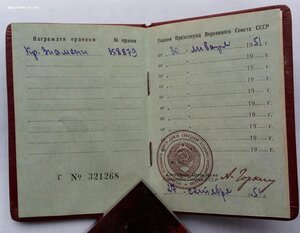 Награжден орденом № ордена
Кр. Знамени 358879
Г № 321268
Указом Президиума Верховного Совета СССР
от
30 января 1951 г.
19 г.
19 г.
19 г.
19 г.
19 г.
19 г.
19
А. Горкин
сентября 1951 г.